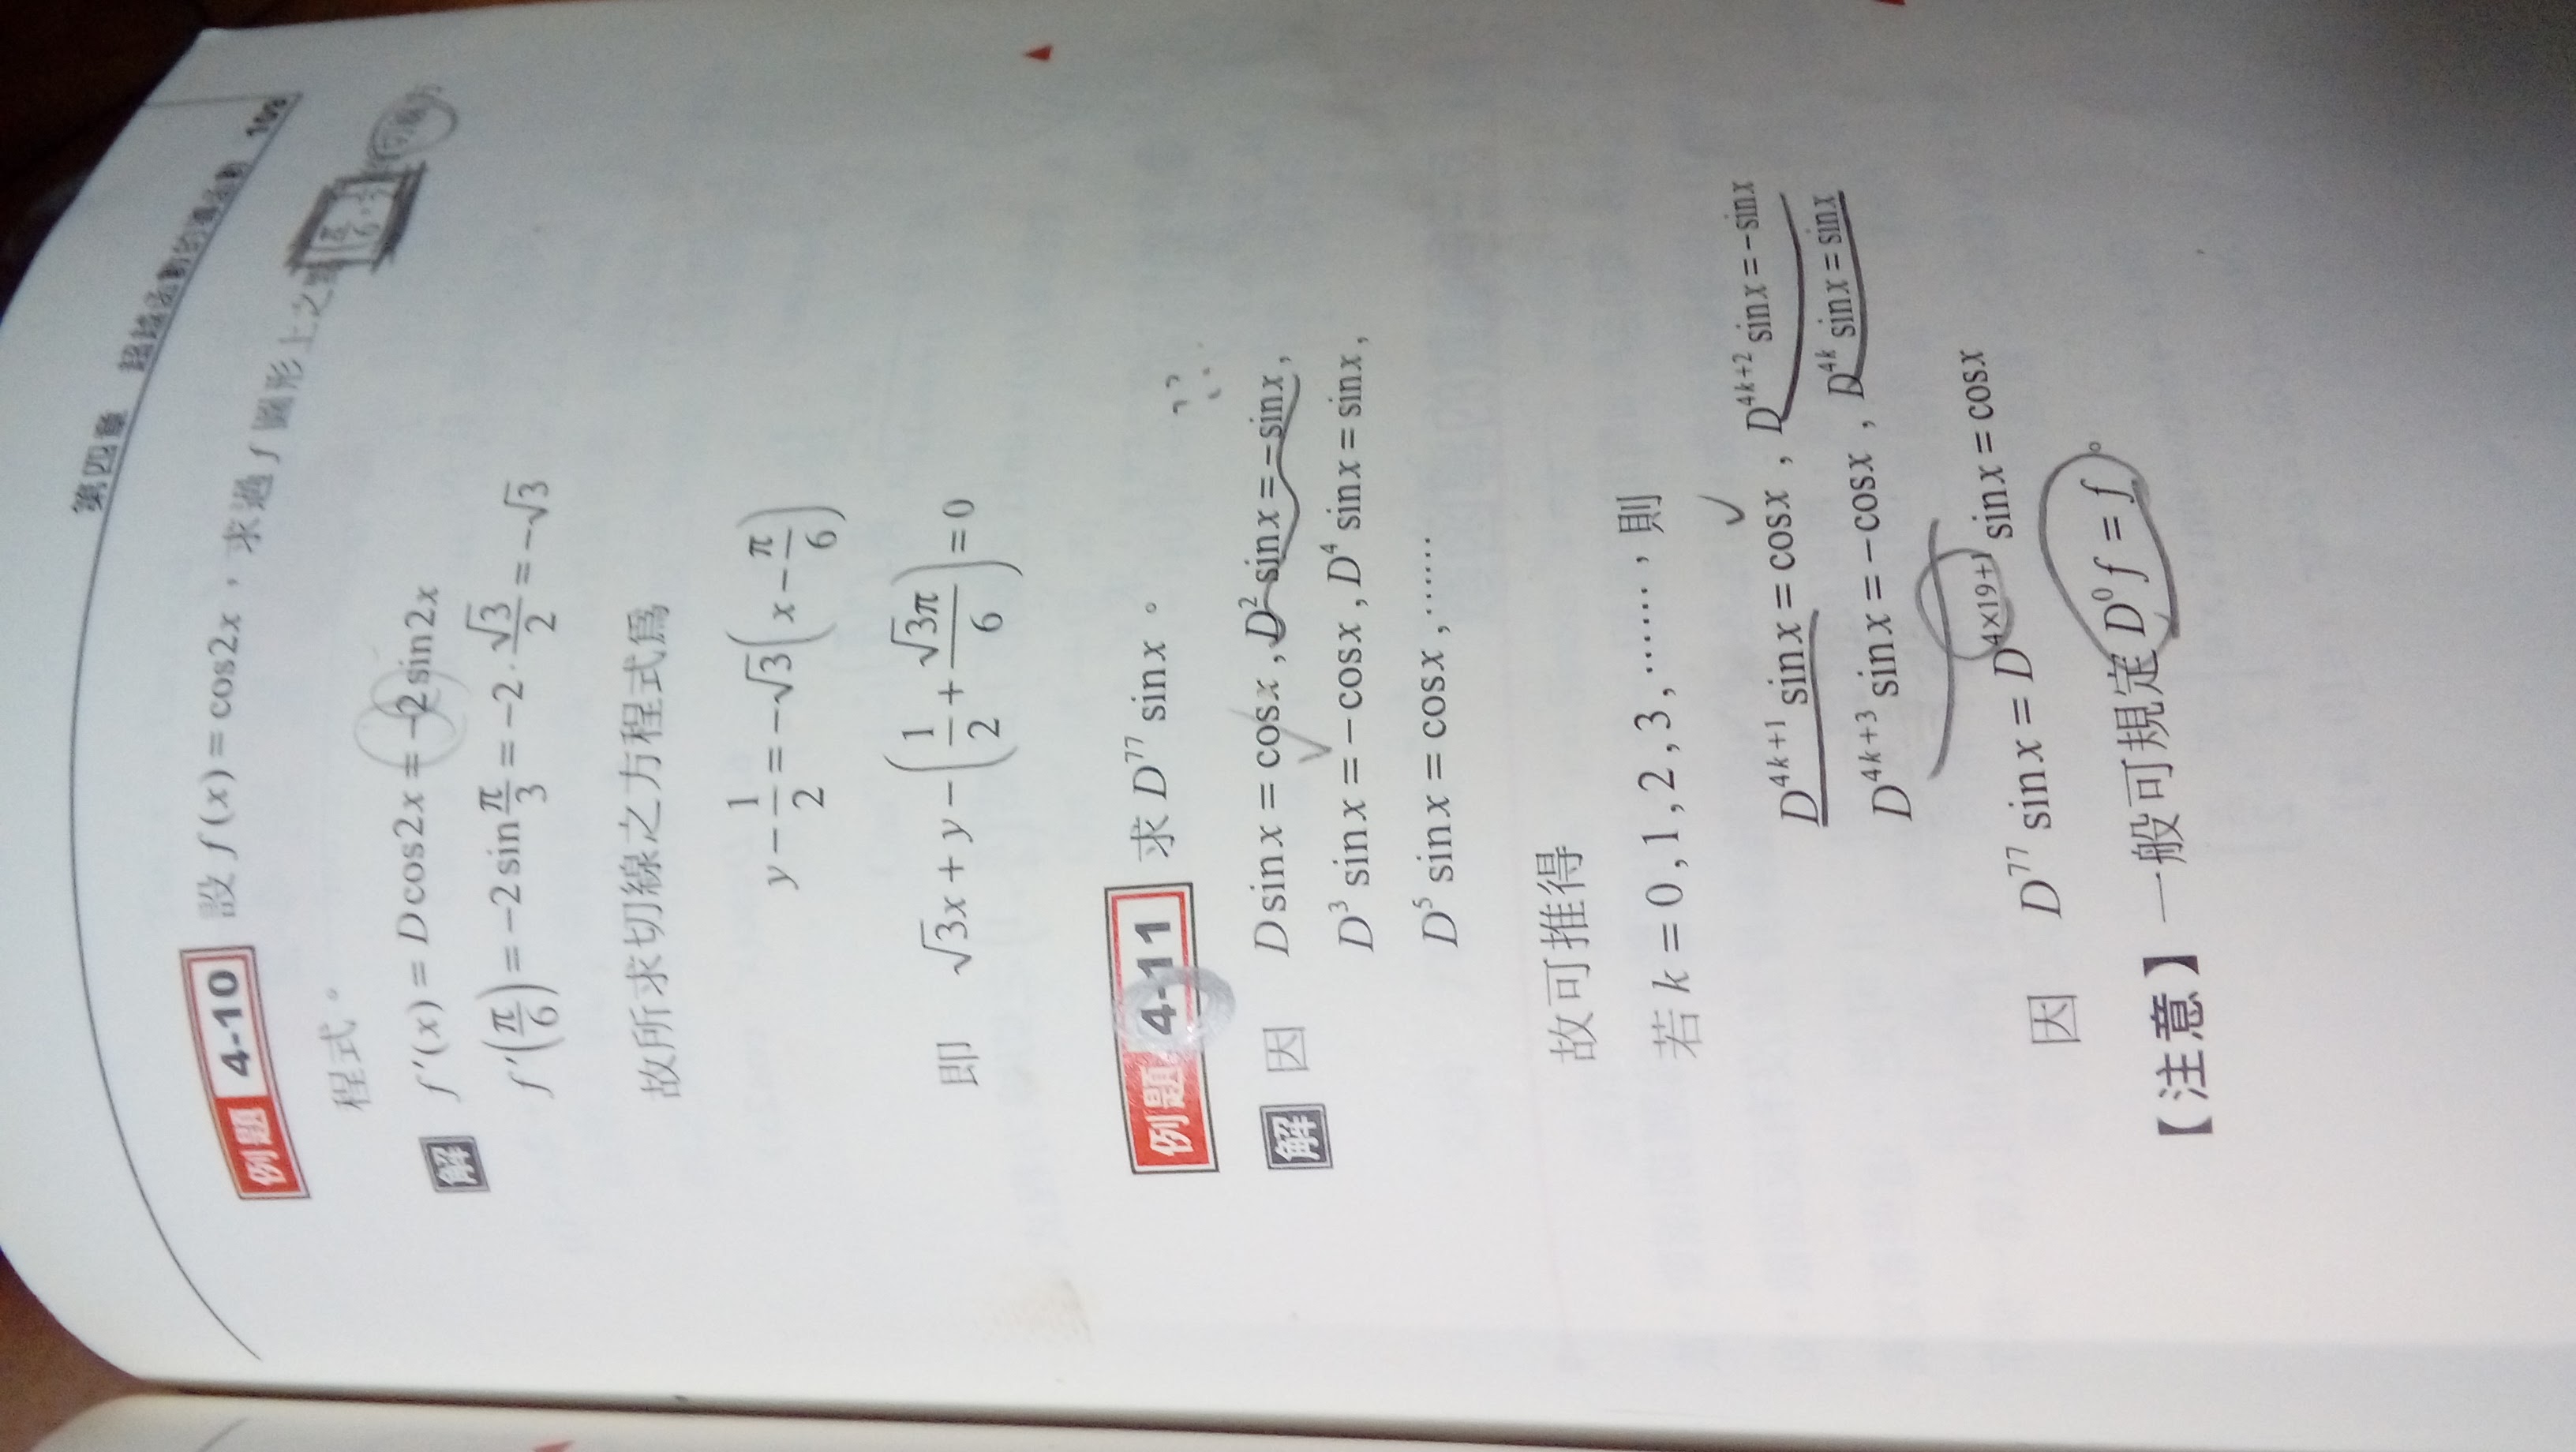 第四章 超越函數的導函數 109
例題 4-10 設 f(x)=cos2x，求過 f 圖形上之點
程式。
解 f′(x)=Dcos2x=-2sin2x
f′(π/6)=-2sin π/3=-2·√3/2=-√3
故所求切線之方程式為
y-1/2=-√3(x-π/6)
即 √3x+y-(1/2+√3π/6)=0
例題 4-11 求 D⁷⁷ sinx。
??
解 因 Dsinx=cosx,D² sinx=-sinx,
D³ sinx=-cosx,D⁴ sinx=sinx,
D⁵ sinx=cosx,……
故可推得
若 k=0,1,2,3,……,則
D⁴ᵏ⁺¹ sinx=cosx,D⁴ᵏ⁺² sinx=-sinx
D⁴ᵏ⁺³ sinx=-cosx,D⁴ᵏ sinx=sinx
因 D⁷⁷ sinx=D⁴ˣ¹⁹⁺¹ sinx=cosx
【注意】一般可規定 D⁰f=f。